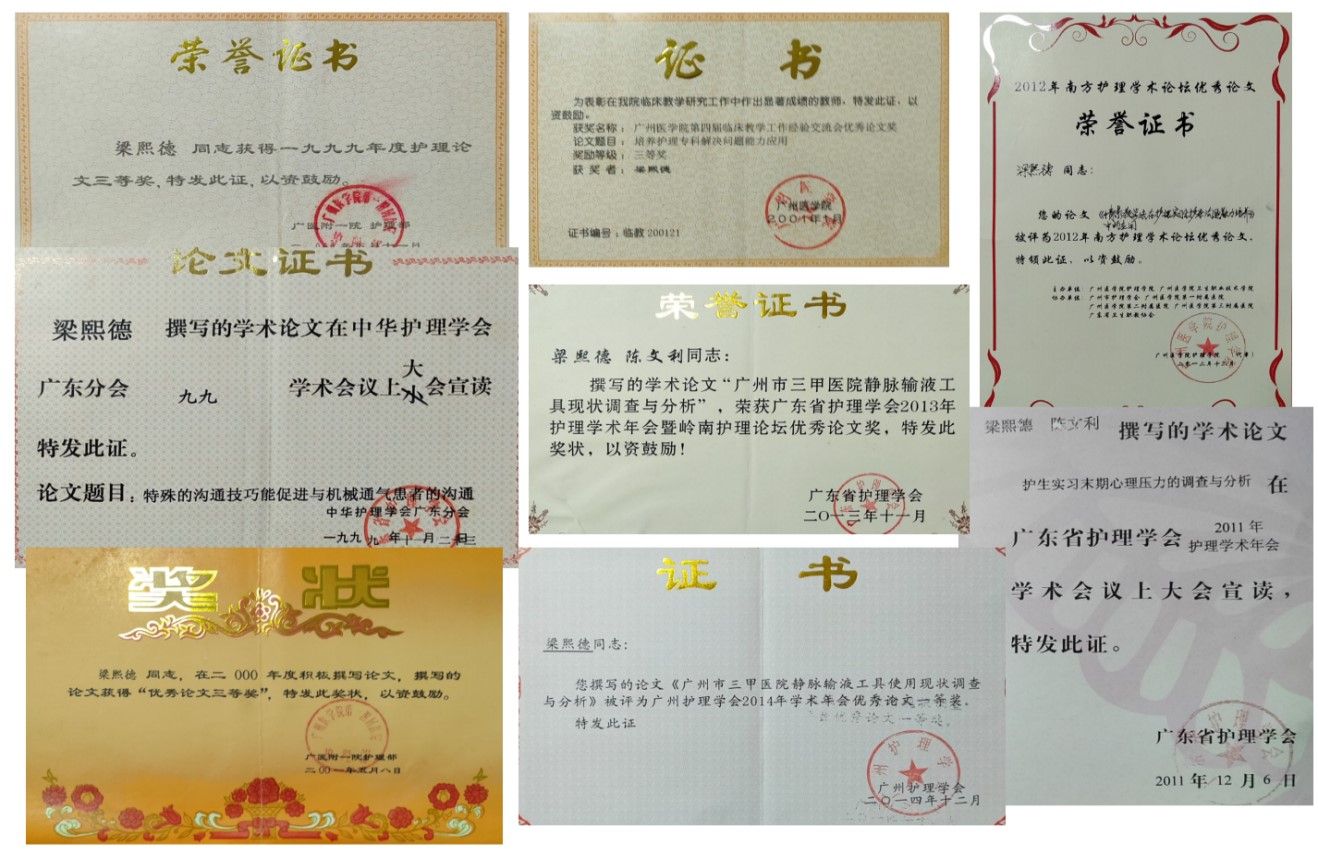 荣誉证书
梁熙德 同志获得一九九九年度护理论
文三等奖,特发此证,以资鼓励。
广医附一院 护理部
论文证书
梁熙德 撰写的学术论文在中华护理学会
广东分会 九九 学术会议上大会宣读
特发此证。
论文题目:特殊的沟通技巧能促进与机械通气患者的沟通
中华护理学会广东分会
一九九九年十一月二十三日
奖 状
梁熙德 同志,在二000 年度积极撰写论文,撰写的
论文获得“优秀论文三等奖”,特发此奖状,以资鼓励。
广医附一院护理部
二00一年五月八日
证 书
为表彰在我院临床教学研究工作中作出显著成绩的教师,特发此证,以
资鼓励。
获奖名称:广州医学院第四届临床教学工作经验交流会优秀论文奖
论文题目:培养护理专科解决问题能力应用
奖励等级:三等奖
获 奖 者:梁熙德
广州医学院
2001年 月
证书编号:临教 200121
荣誉证书
梁熙德 陈文利同志:
撰写的学术论文“广州市三甲医院静脉输液工
具现状调查与分析”,荣获广东省护理学会2013年
护理学术年会暨岭南护理论坛优秀论文奖,特发此
奖状,以资鼓励!
广东省护理学会
二〇一三年十一月
证 书
梁熙德同志:
您撰写的论文《广州市三甲医院静脉输液工具使用现状调查
与分析》被评为广州护理学会2014年学术年会优秀论文一等奖。
特发此证
广州护理学会
二〇一四年十二月
2012年南方护理学术论坛优秀论文
荣誉证书
梁熙德 同志:
您的论文
被评为2012年南方护理学术论坛优秀论文,
特颁此证,以资鼓励。
主办单位:广州医学院护理学院 广州医学院卫生职业技术学院
协办单位:广州市护理学会 广州医学院第一附属医院
广州医学院第二附属医院 广州医学院第三附属医院
广东省卫生职教协会
广州医学院护理学院 (代章)
二〇一二年十二月
梁熙德 陈文利 撰写的学术论文
护生实习末期心理压力的调查与分析 在
广东省护理学会 2011 年
护理学术年会
学术会议上大会宣读,
特发此证。
广东省护理学会
2011 年 12 月 6 日